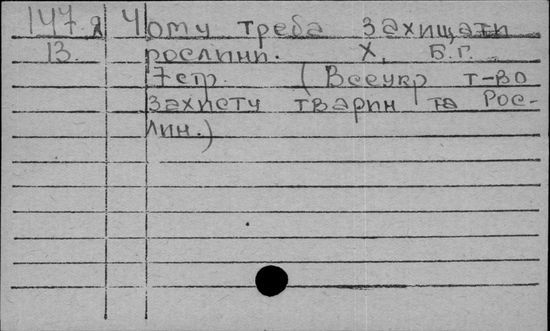 147.д Чому треба захищати
13. рослини. Х. Б.Г.
7стр. (Всеукр т-во
захисту тварин та Рос-
лин.)